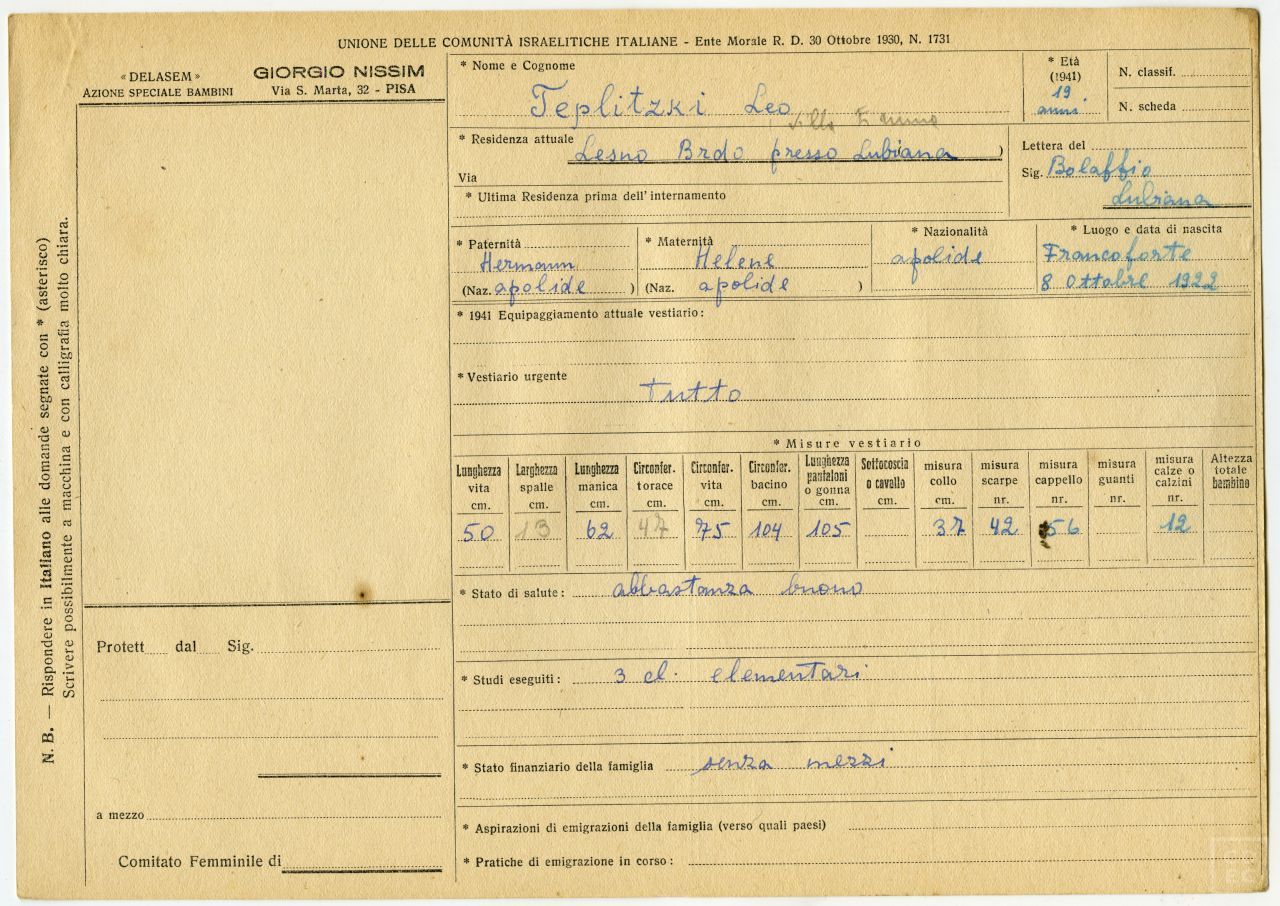 UNIONE DELLE COMUNITÀ ISRAELITICHE ITALIANE - Ente Morale R. D. 30 Ottobre 1930, N. 1731
« DELASEM »
AZIONE SPECIALE BAMBINI
GIORGIO NISSIM
Via S. Marta, 32 - PISA
N. B. — Rispondere in Italiano alle domande segnate con * (asterisco)
Scrivere possibilmente a macchina e con calligrafia molto chiara.
Protett dal Sig.
a mezzo
Comitato Femminile di
* Nome e Cognome
Teplitzki Leo
* Età
(1941)
19
anni
N. classif.
N. scheda
* Residenza attuale
Villa
Lesno Brdo presso Lubiana )
Via
* Ultima Residenza prima dell'internamento
Lettera del
Sig. Bolaffio
Lubiana
* Paternità
Hermann
(Naz. apolide )
* Maternità
Helene
(Naz. apolide )
* Nazionalità
apolide
* Luogo e data di nascita
Francoforte
8 Ottobre 1922
* 1941 Equipaggiamento attuale vestiario:
* Vestiario urgente
Tutto
* Misure vestiario
Lunghezza vita cm. 50
Larghezza spalle cm. 13
Lunghezza manica cm. 62
Circonfer. torace cm. 47
Circonfer. vita cm. 75
Circonfer. bacino cm. 104
Lunghezza pantaloni o gonna cm. 105
Sottocoscia o cavallo cm.
misura collo cm. 37
misura scarpe nr. 42
misura cappello nr. 56
misura guanti nr.
misura calze o calzini nr. 12
Altezza totale bambino
* Stato di salute: abbastanza buono
* Studi eseguiti: 3 cl. elementari
* Stato finanziario della famiglia senza mezzi
* Aspirazioni di emigrazioni della famiglia (verso quali paesi)
* Pratiche di emigrazione in corso: